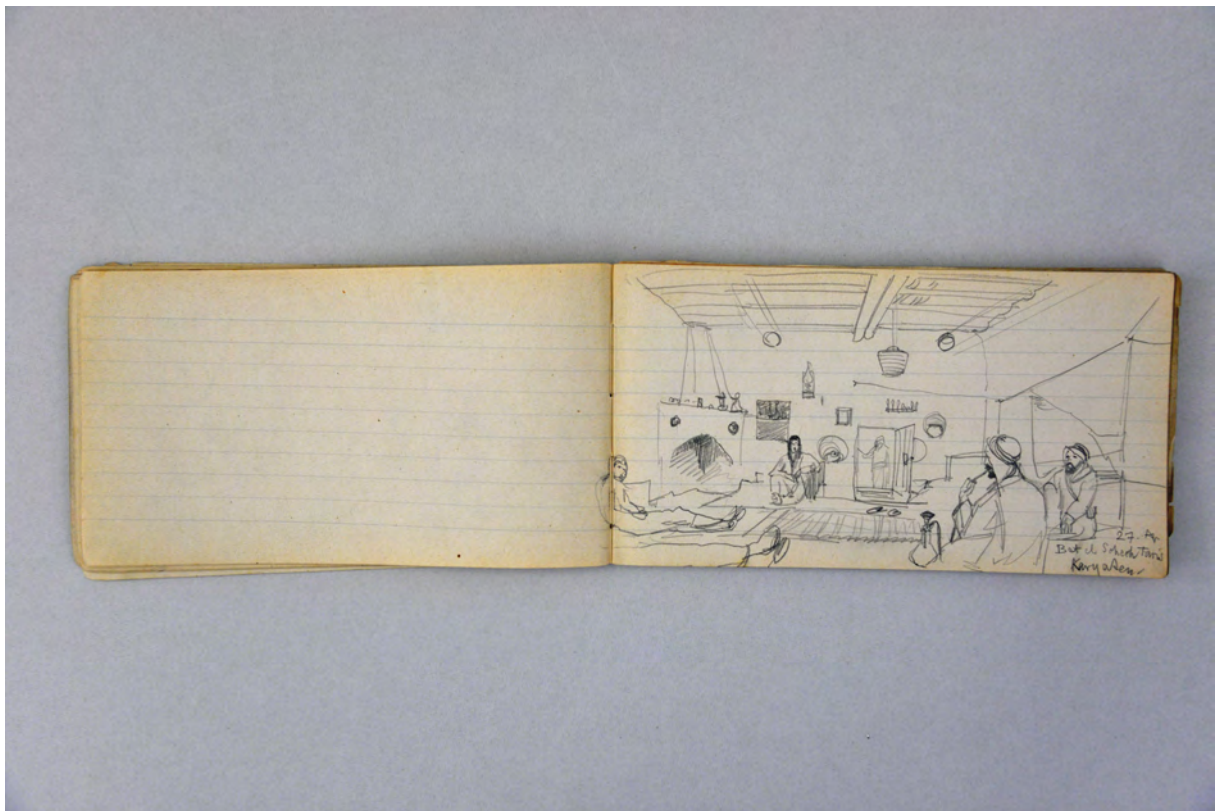 27. Ap
Bet el Schech Faris
Karyaten